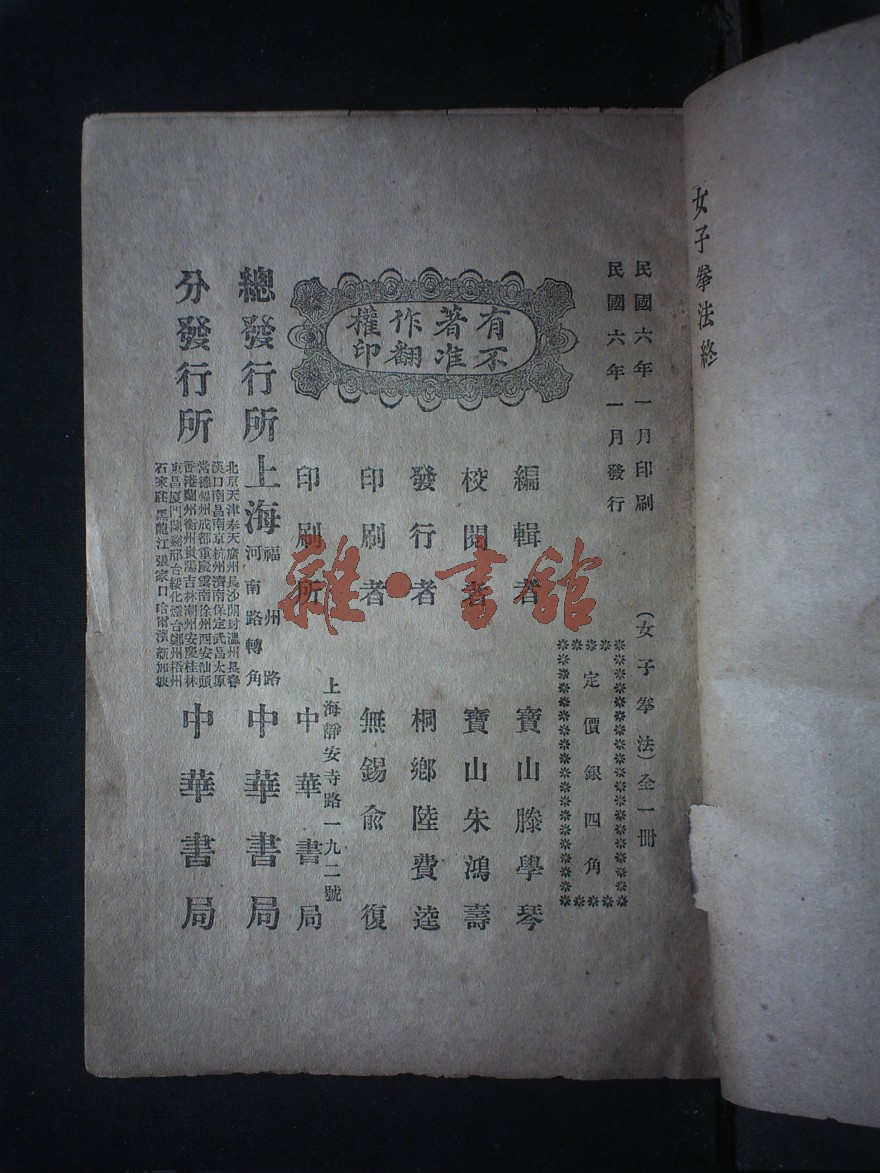 女子拳法終
民國六年一月印刷
民國六年一月發行
(女子拳法)全一冊
定價銀四角
有著作權
不准翻印
編輯者 寶山滕學琴
校閱者 寶山朱鴻壽
發行者 桐鄉陸費逵
印刷者 無錫俞復
上海靜安寺路一九二號
印刷所 中華書局
總發行所 上海福州路河南路轉角 中華書局
分發行所 中華書局
北京天津奉天廣州長沙開封溫州長春
漢口南昌南京杭州濟南保定武昌太原
常德福州成都重慶雲南徐州西安汕頭
香港蘭州衡州貴陽吉林潮州安慶桂林
東昌廈門 邢台綏化煙台鄭州梧州
石家莊黑龍江張家口哈爾濱新加坡
雜·書館